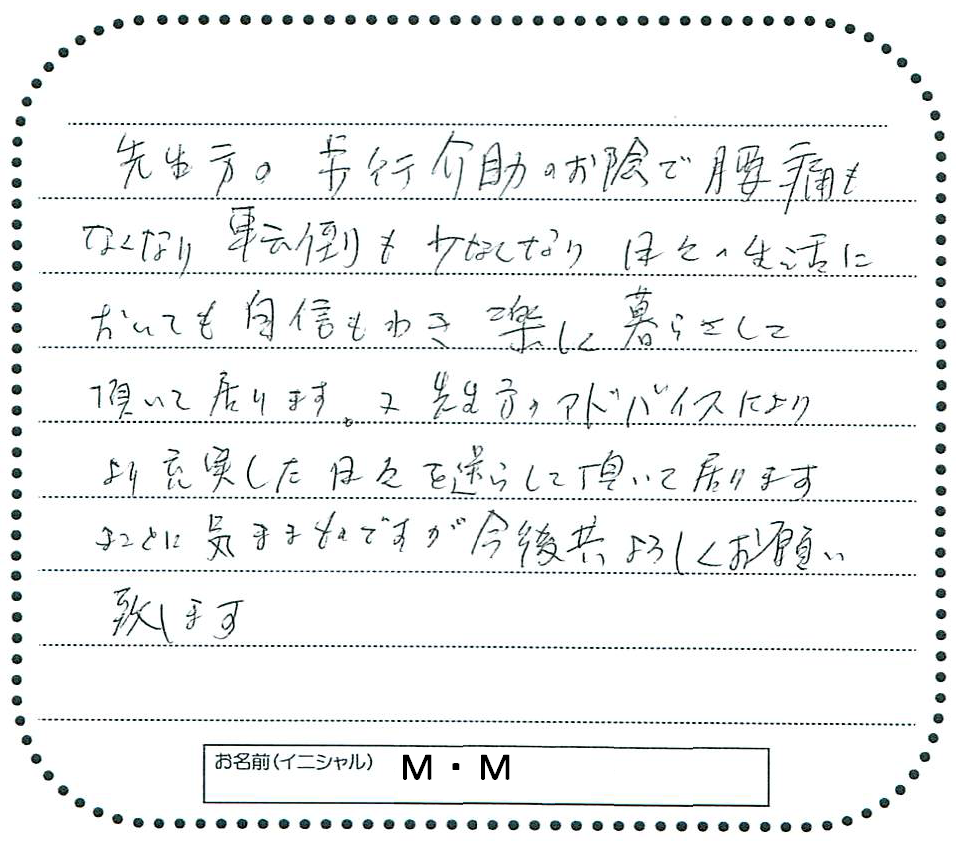 先生方の歩行介助のお陰で腰痛も
なくなり転倒も少なくなり日々の生活に
おいても自信もわき楽しく暮らさして
頂いて居ります。又先生方のアドバイスにより
より充実した日々を送らして頂いて居ります
まことに気ままものですが今後共よろしくお願い
致します
お名前(イニシャル) M・M